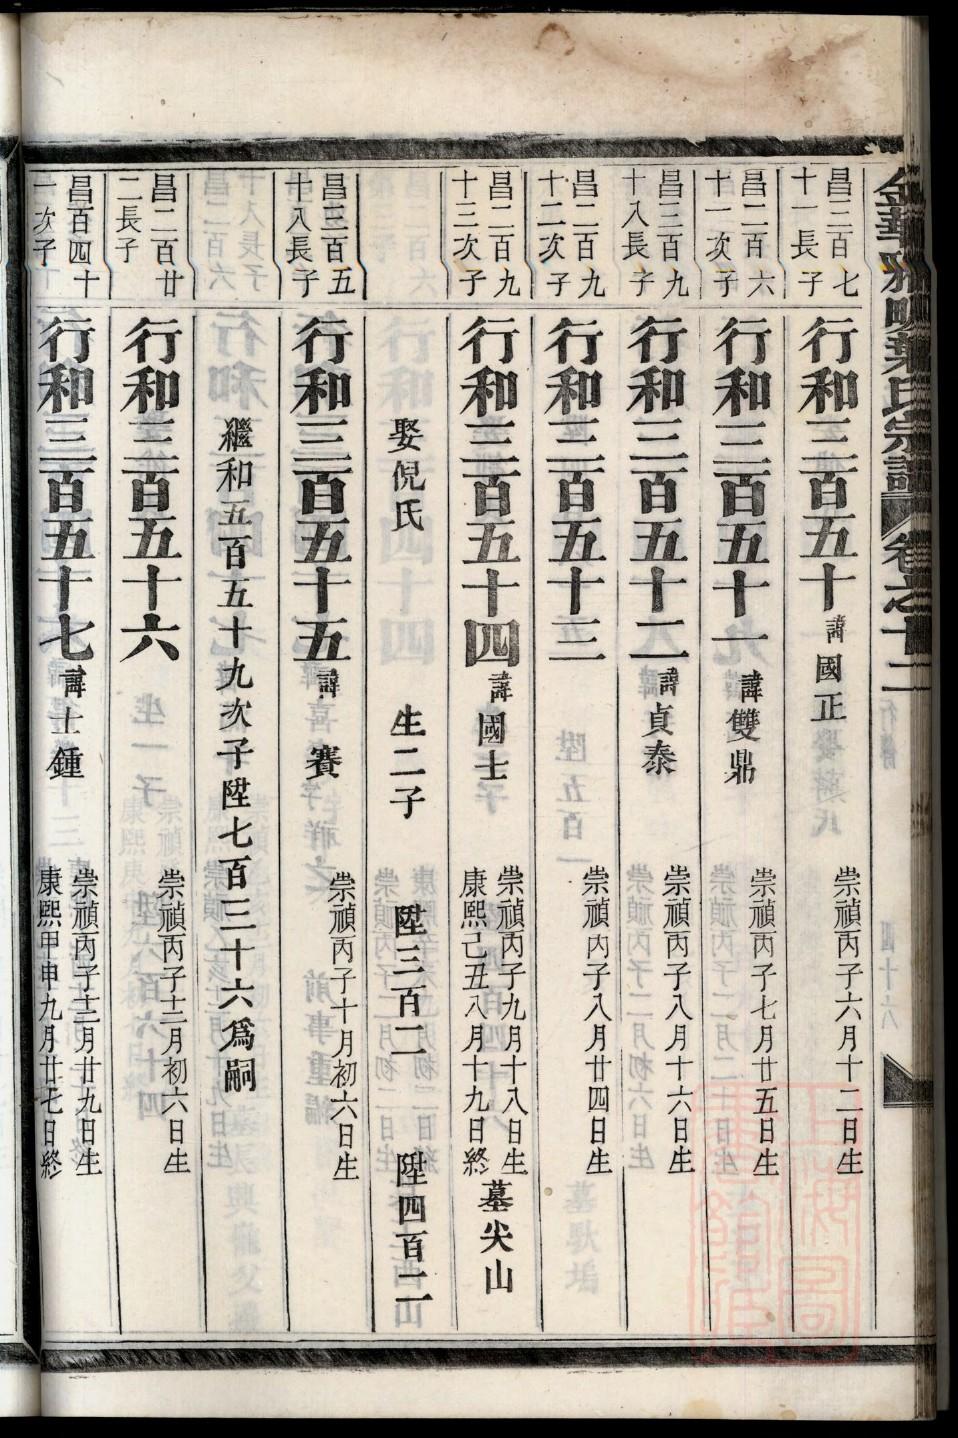 金華雅畈葉氏宗譜 卷之十二
昌三百七十一長子
行和三百五十 諱國正 崇禎丙子六月十二日生
昌二百六十一次子
行和三百五十一 諱雙鼎 崇禎丙子七月廿五日生
昌三百九十八長子
行和三百五十二 諱貞泰 崇禎丙子八月十六日生
昌二百九十二次子
行和三百五十三 崇禎丙子八月廿四日生
昌二百九十三次子
行和三百五十四 諱國士 崇禎丙子九月十八日生
康熙己丑八月十九日終 墓尖山
娶倪氏 生二子 陞三百二 陞四百二
昌三百五十八長子
行和三百五十五 諱賽 崇禎丙子十月初六日生
繼和五百五十九次子陞七百三十六爲嗣
昌二百廿二長子
行和三百五十六 崇禎丙子十二月初六日生
昌百四十一次子
行和三百五十七 諱士鍾 崇禎丙子十二月廿九日生
康熙甲申九月廿七日終